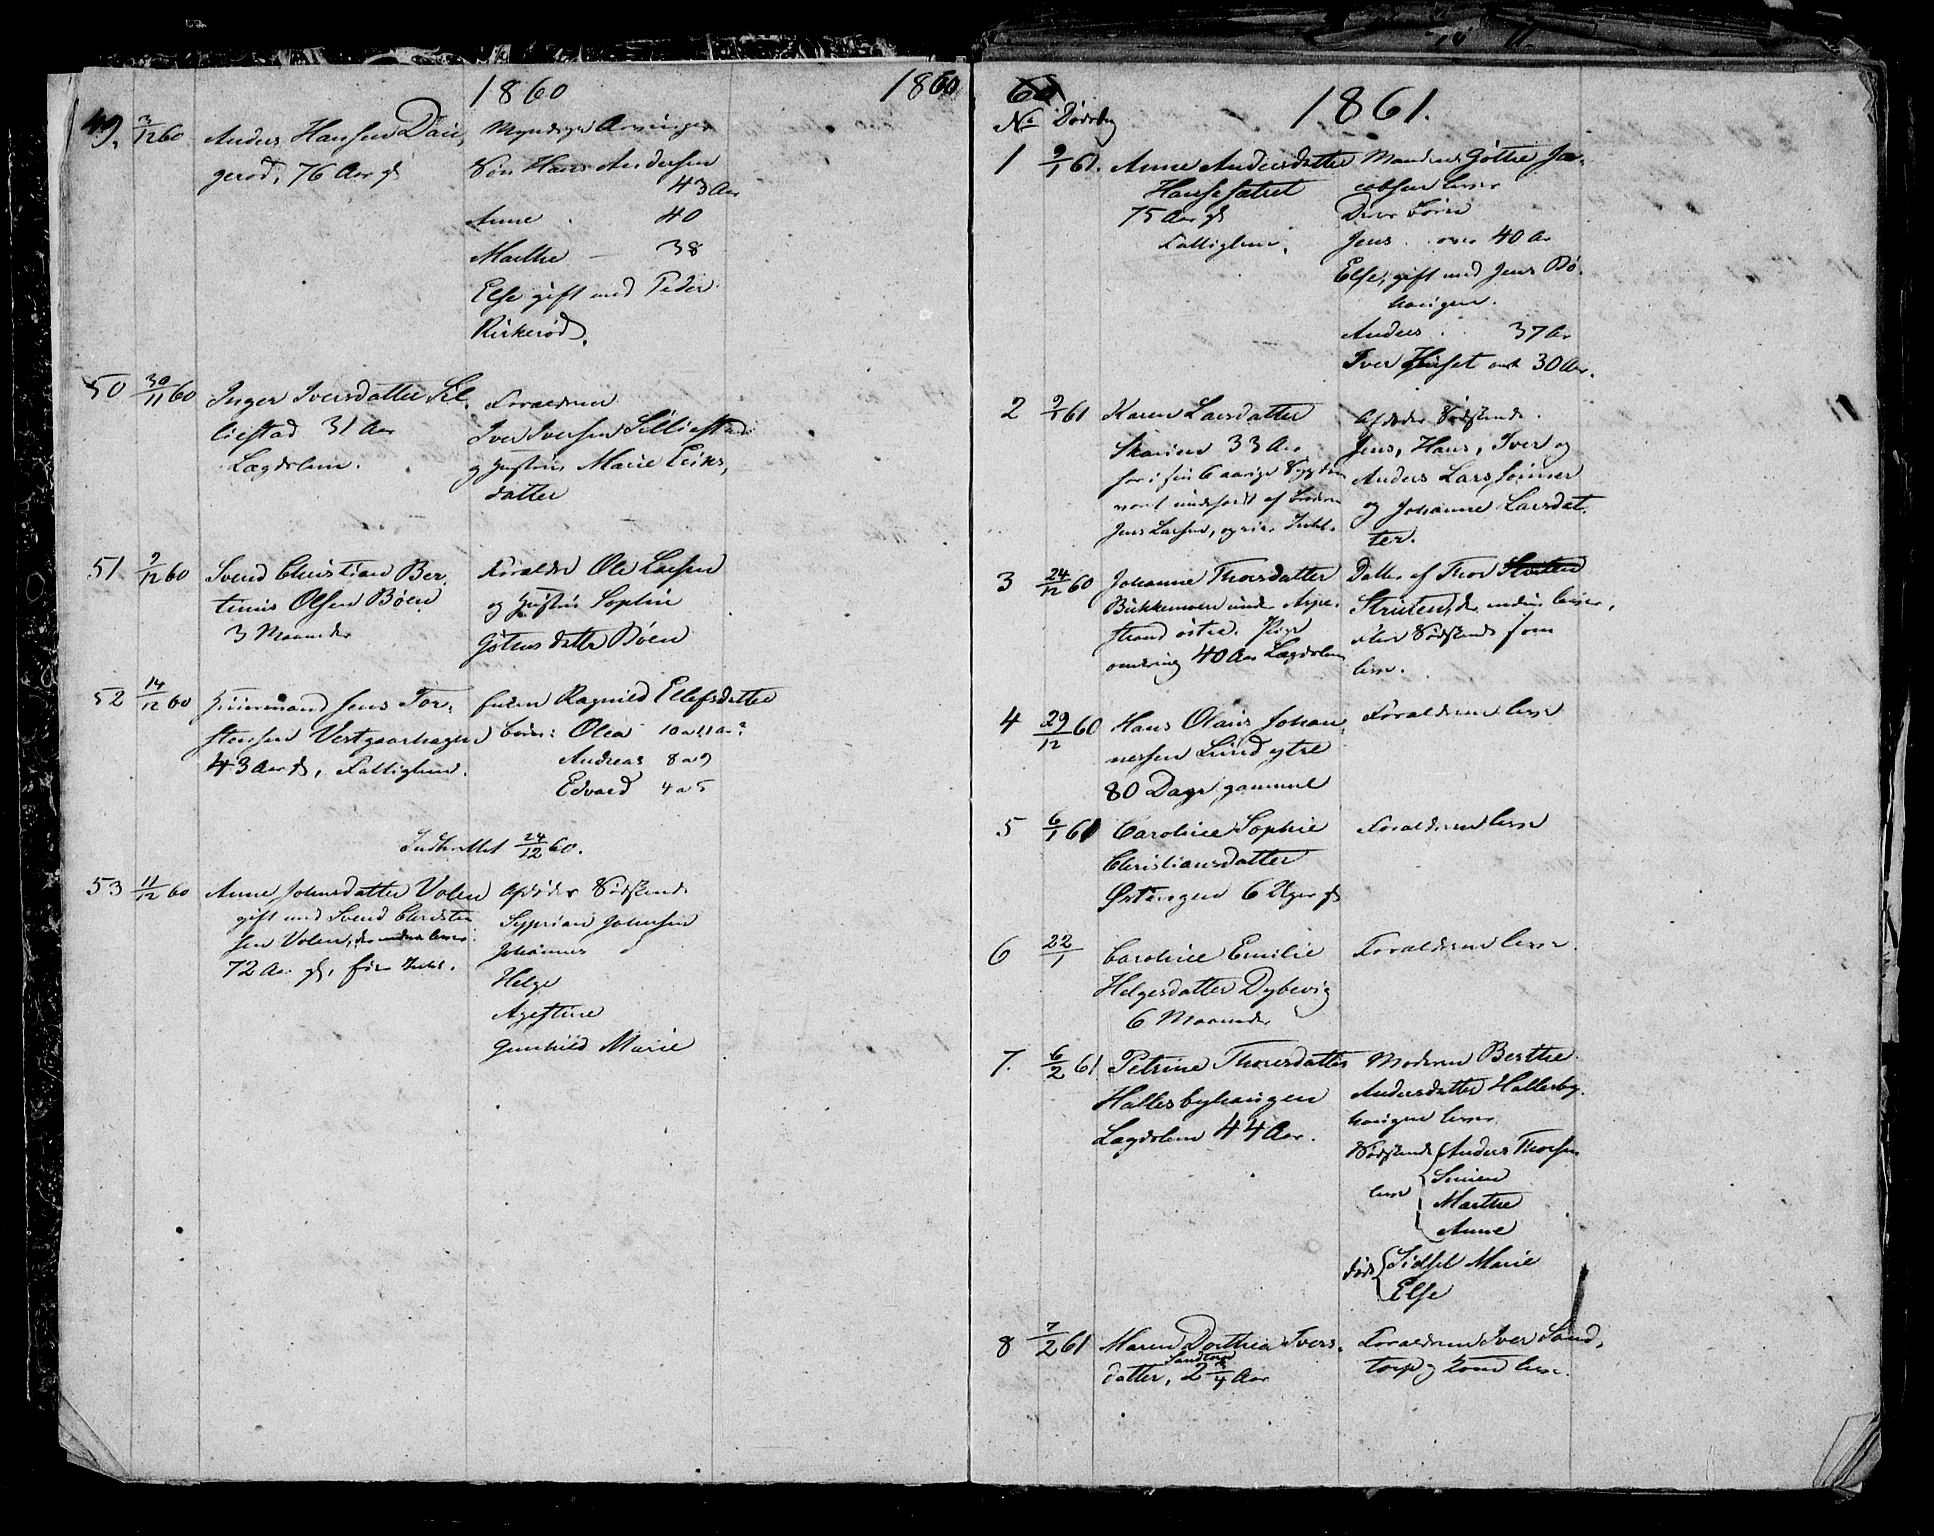 1860
1860
49. 3/12 60 Anders Hansen Daue,
gerød, 76 Aar gl
Myndige Arvinger
Søn Hans Andersen
43 Aar
Anne 40
Marthe – 38
Else gift med Peder
Kirkerød.
50 30/11 60 Inger Iversdatter Sil,
liestad 31 Aar
Lægdslem.
Foraldrene
Iver Iversen Silliestad
og Hustru Marie Eriks,
datter
51 9/12 60 Svend Christian Ber,
tinius Olsen Bøen
3 Maaneder
Foraldre Ole Larsen
og Hustru Sophie
datter Bøen
52 14/12 60 Huusmand Jens Tor,
stensen Vestgaarhagen
43 Aar gl, Fattiglem.
Enken Ragnild Ellefsdatter
børn: Olea 10 a 11 aar?
Andreas 8 a 9
Edvard 4 a 5
Indberettet 24/12 60.
53 11/12 60 Anne Johnsdatter Volen
gift med Svend Christen
sen Volen, der endnu lever
72 Aar gl,
Afdødes Sødskende
Syprian Johnsen
Johannes
Helge
Agestine
Gunhild Marie
60
1861.
No Dødsdag
1 9/1 61. Anne Andersdatter
Hansesætret
75 Aar gl
Fattiglem.
Manden Göttre Ja,
cobsen lever
Deres börn
Jens over 40 Ar
Else, gift med Jens Bö,
haugen.
Anders 37 Ar
Iver Huset omt 30 Ar.
2 9/1 61 Karen Larsdatter
Skarien 33 Aar
har i sin 6 aarige Sygdom
været underholdt af broderen
Jens Larsen,
Afdødes Sødskende
Jens, Hans, Iver og
Anders Lars sönner
og Johanne Larsdat,
ter.
3 24/12 60 Johanne Thorsdatter
Bukkemoen under Aspe,
strand östre. Pige
omkring 40 Aar Lægdslem
Datter af Thor
Struten, der endnu lever,
Sødskende som
lever.
4 29/12 60 Hans Olaus Johan,
nessen Lund ytre
80 Dage gammel
Foraldrene lever
5 6/1 61 Caroline Sophie
Christiansdatter
Östengen 6 Uger gl
Foraldrene lever
6 22/1 Caroline Emilie
Helgesdatter Dybevig
6 Maaneder
Foraldrene lever.
7. 6/2 61 Petrine Thorsdatter
Hallesbyhaugen
Lægdslem 44 Aar.
Moderen Berthe
Andersdatter Hallesby,
haugen lever
Sødskende Anders Thorsen
lever Simen
Marthe
Anne
døde Sidsel Marie
Else
8 7/2 61 Maren Dorthea Ivers,
Sandtorp
datter, 2 3/4 Aar
Foraldrene Iver Sand,
torp og Kone lever.